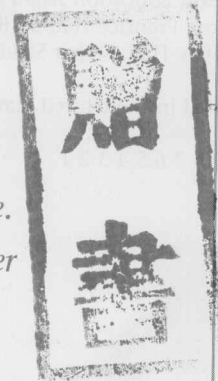 贈
書
e.
er